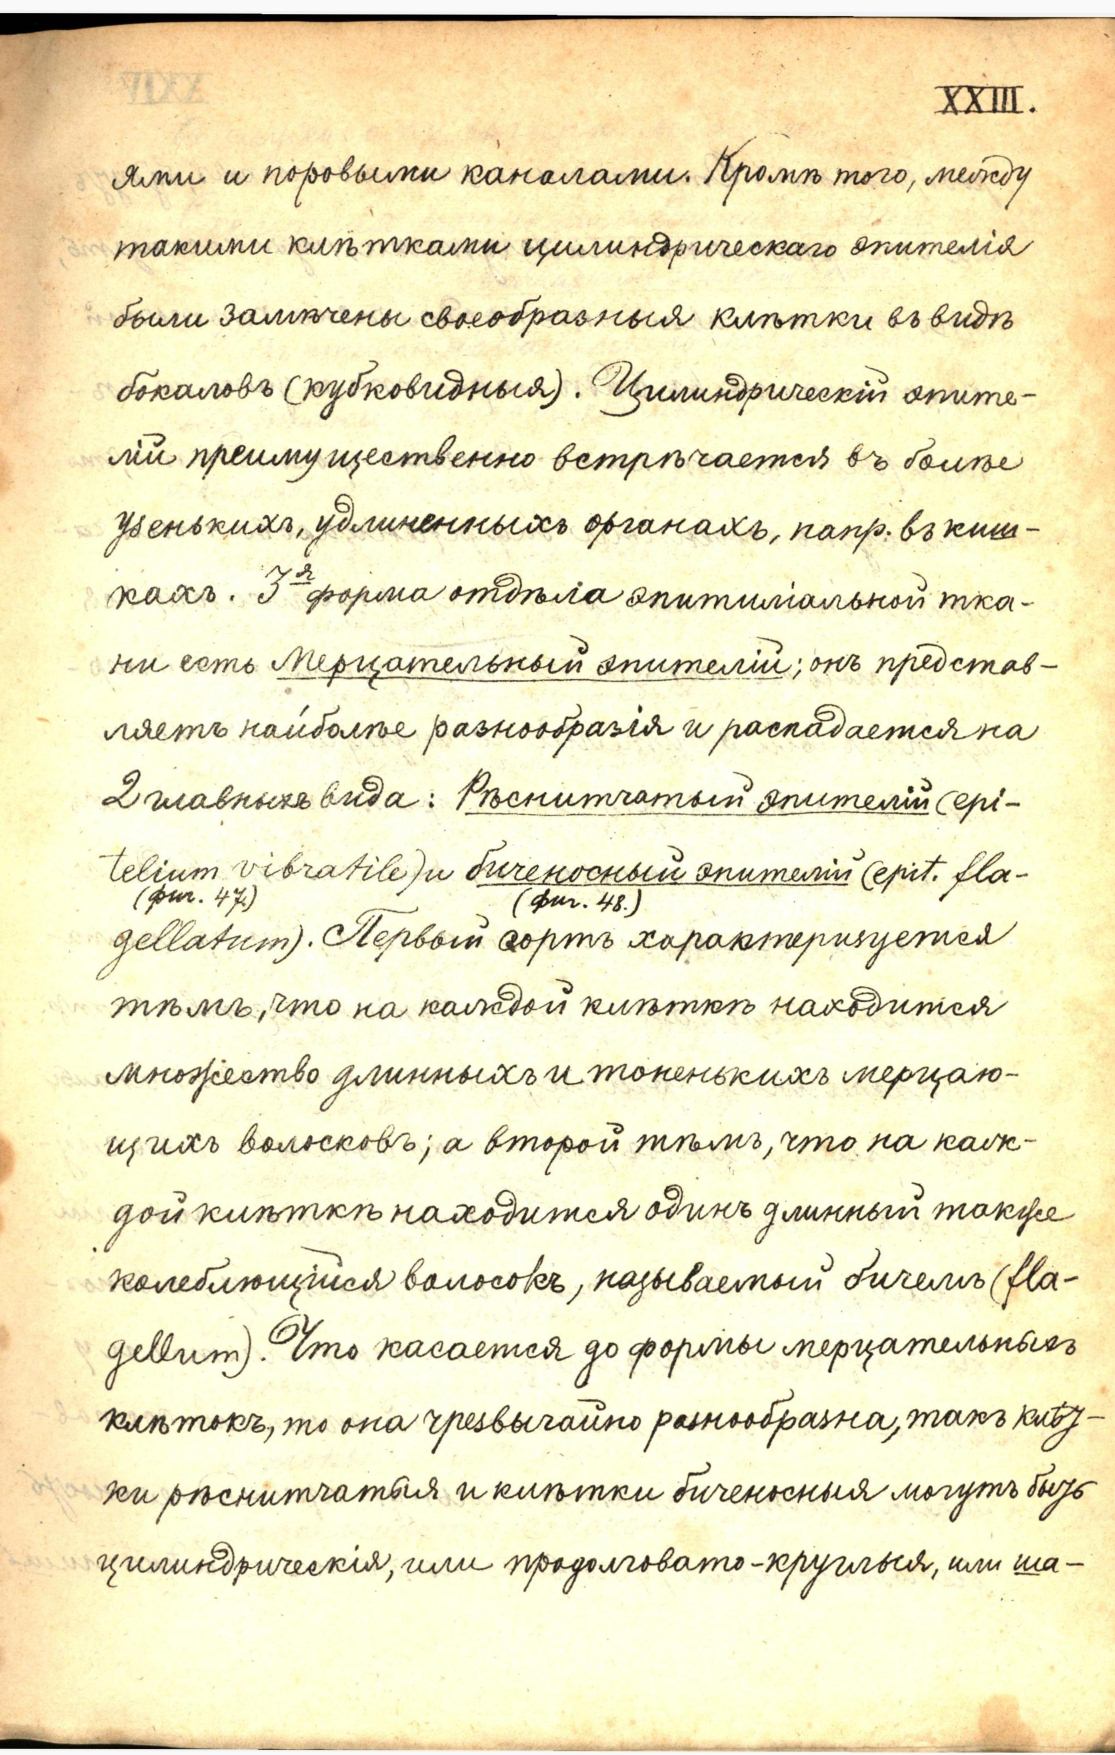 XXIII.
ями и поровыми каналами. Кромѣ того, между
такими клѣтками цилиндрическаго эпителія
были замѣчены своеобразныя клѣтки въ видѣ
бокаловъ (кубковидныя). Цилиндрическій эпите-
лій преимущественно встрѣчается въ болѣе
узенькихъ, удлиненныхъ органахъ, напр. въ киш-
кахъ. 3я форма отдѣла эпитиліальной тка-
ни есть Мерцательный эпителій; онъ представ-
ляетъ наиболѣе разнообразія и распадается на
2 главныхъ вида: Рѣснитчатый эпителій (epi-
telium vibratile) и биченосный эпителій (epit. fla-
(фиг. 47.) (фиг. 48.)
gellatum). Первый сортъ характеризуется
тѣмъ, что на каждой клѣткѣ находится
множество длинныхъ и тоненькихъ мерцаю-
щихъ волосковъ; а второй тѣмъ, что на каж-
дой клѣткѣ находится одинъ длинный также
колеблющійся волосокъ, называемый бичемъ (fla-
gellum). Что касается до формы мерцательныхъ
клѣтокъ, то она чрезвычайно разнообразна, такъ клѣт-
ки рѣснитчатыя и клѣтки биченосныя могутъ быть
цилиндрическія, или продолговато-круглыя, или ша-